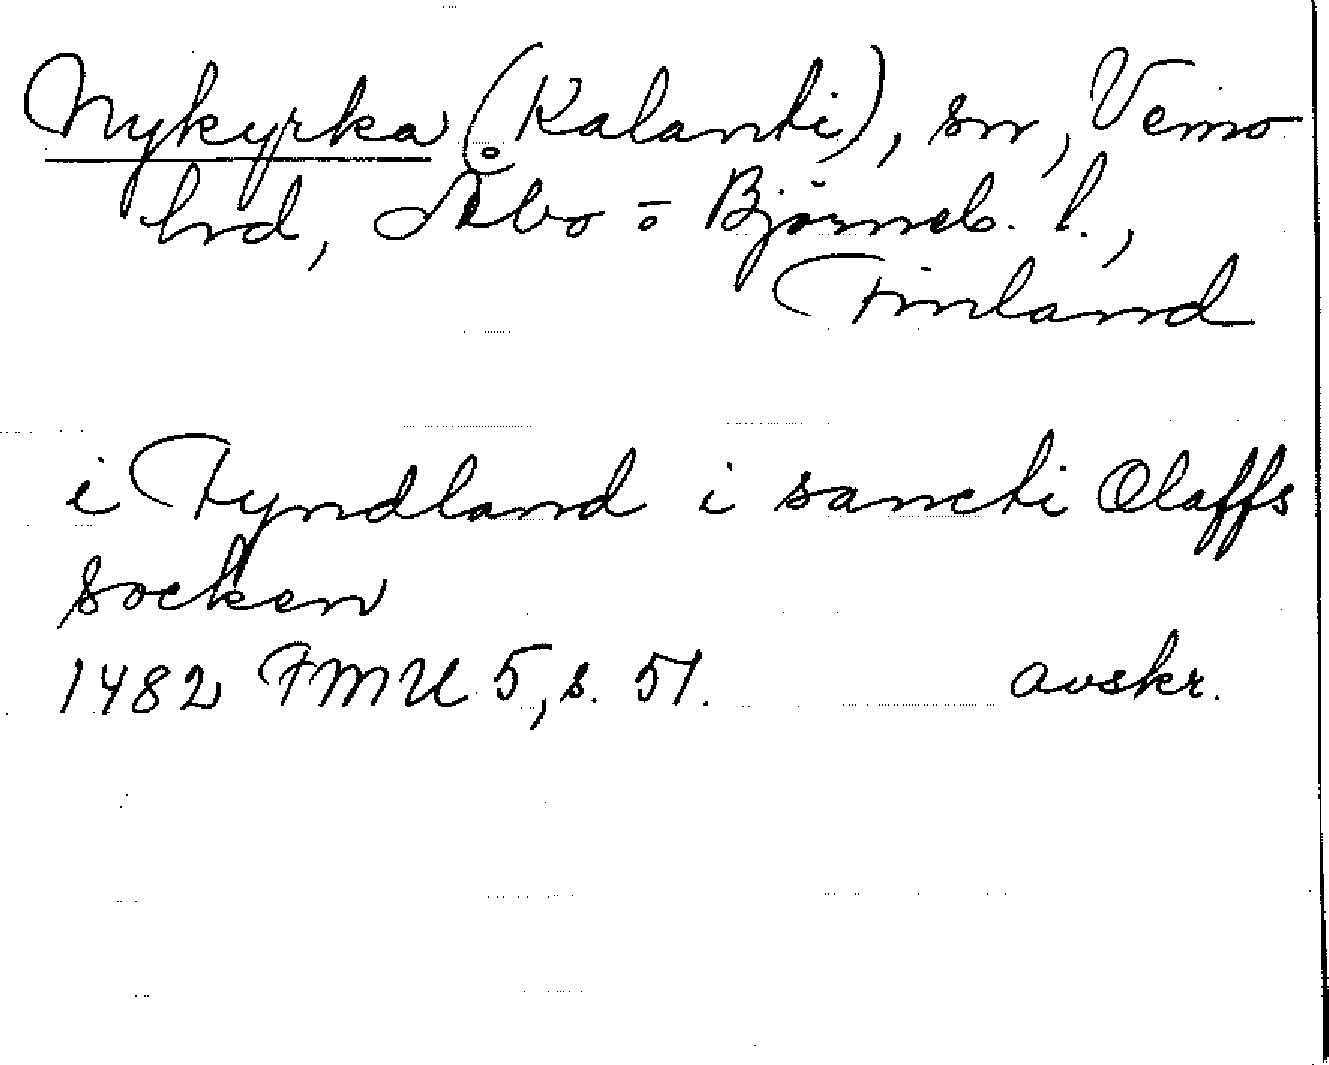 Nykyrka (Kalanti), sn, Vemo
hrd, Åbo o Björneb. l.,
Finland
i Fyndland i sancti Olaffs
socken
1482 FMU 5, s. 51. avskr.